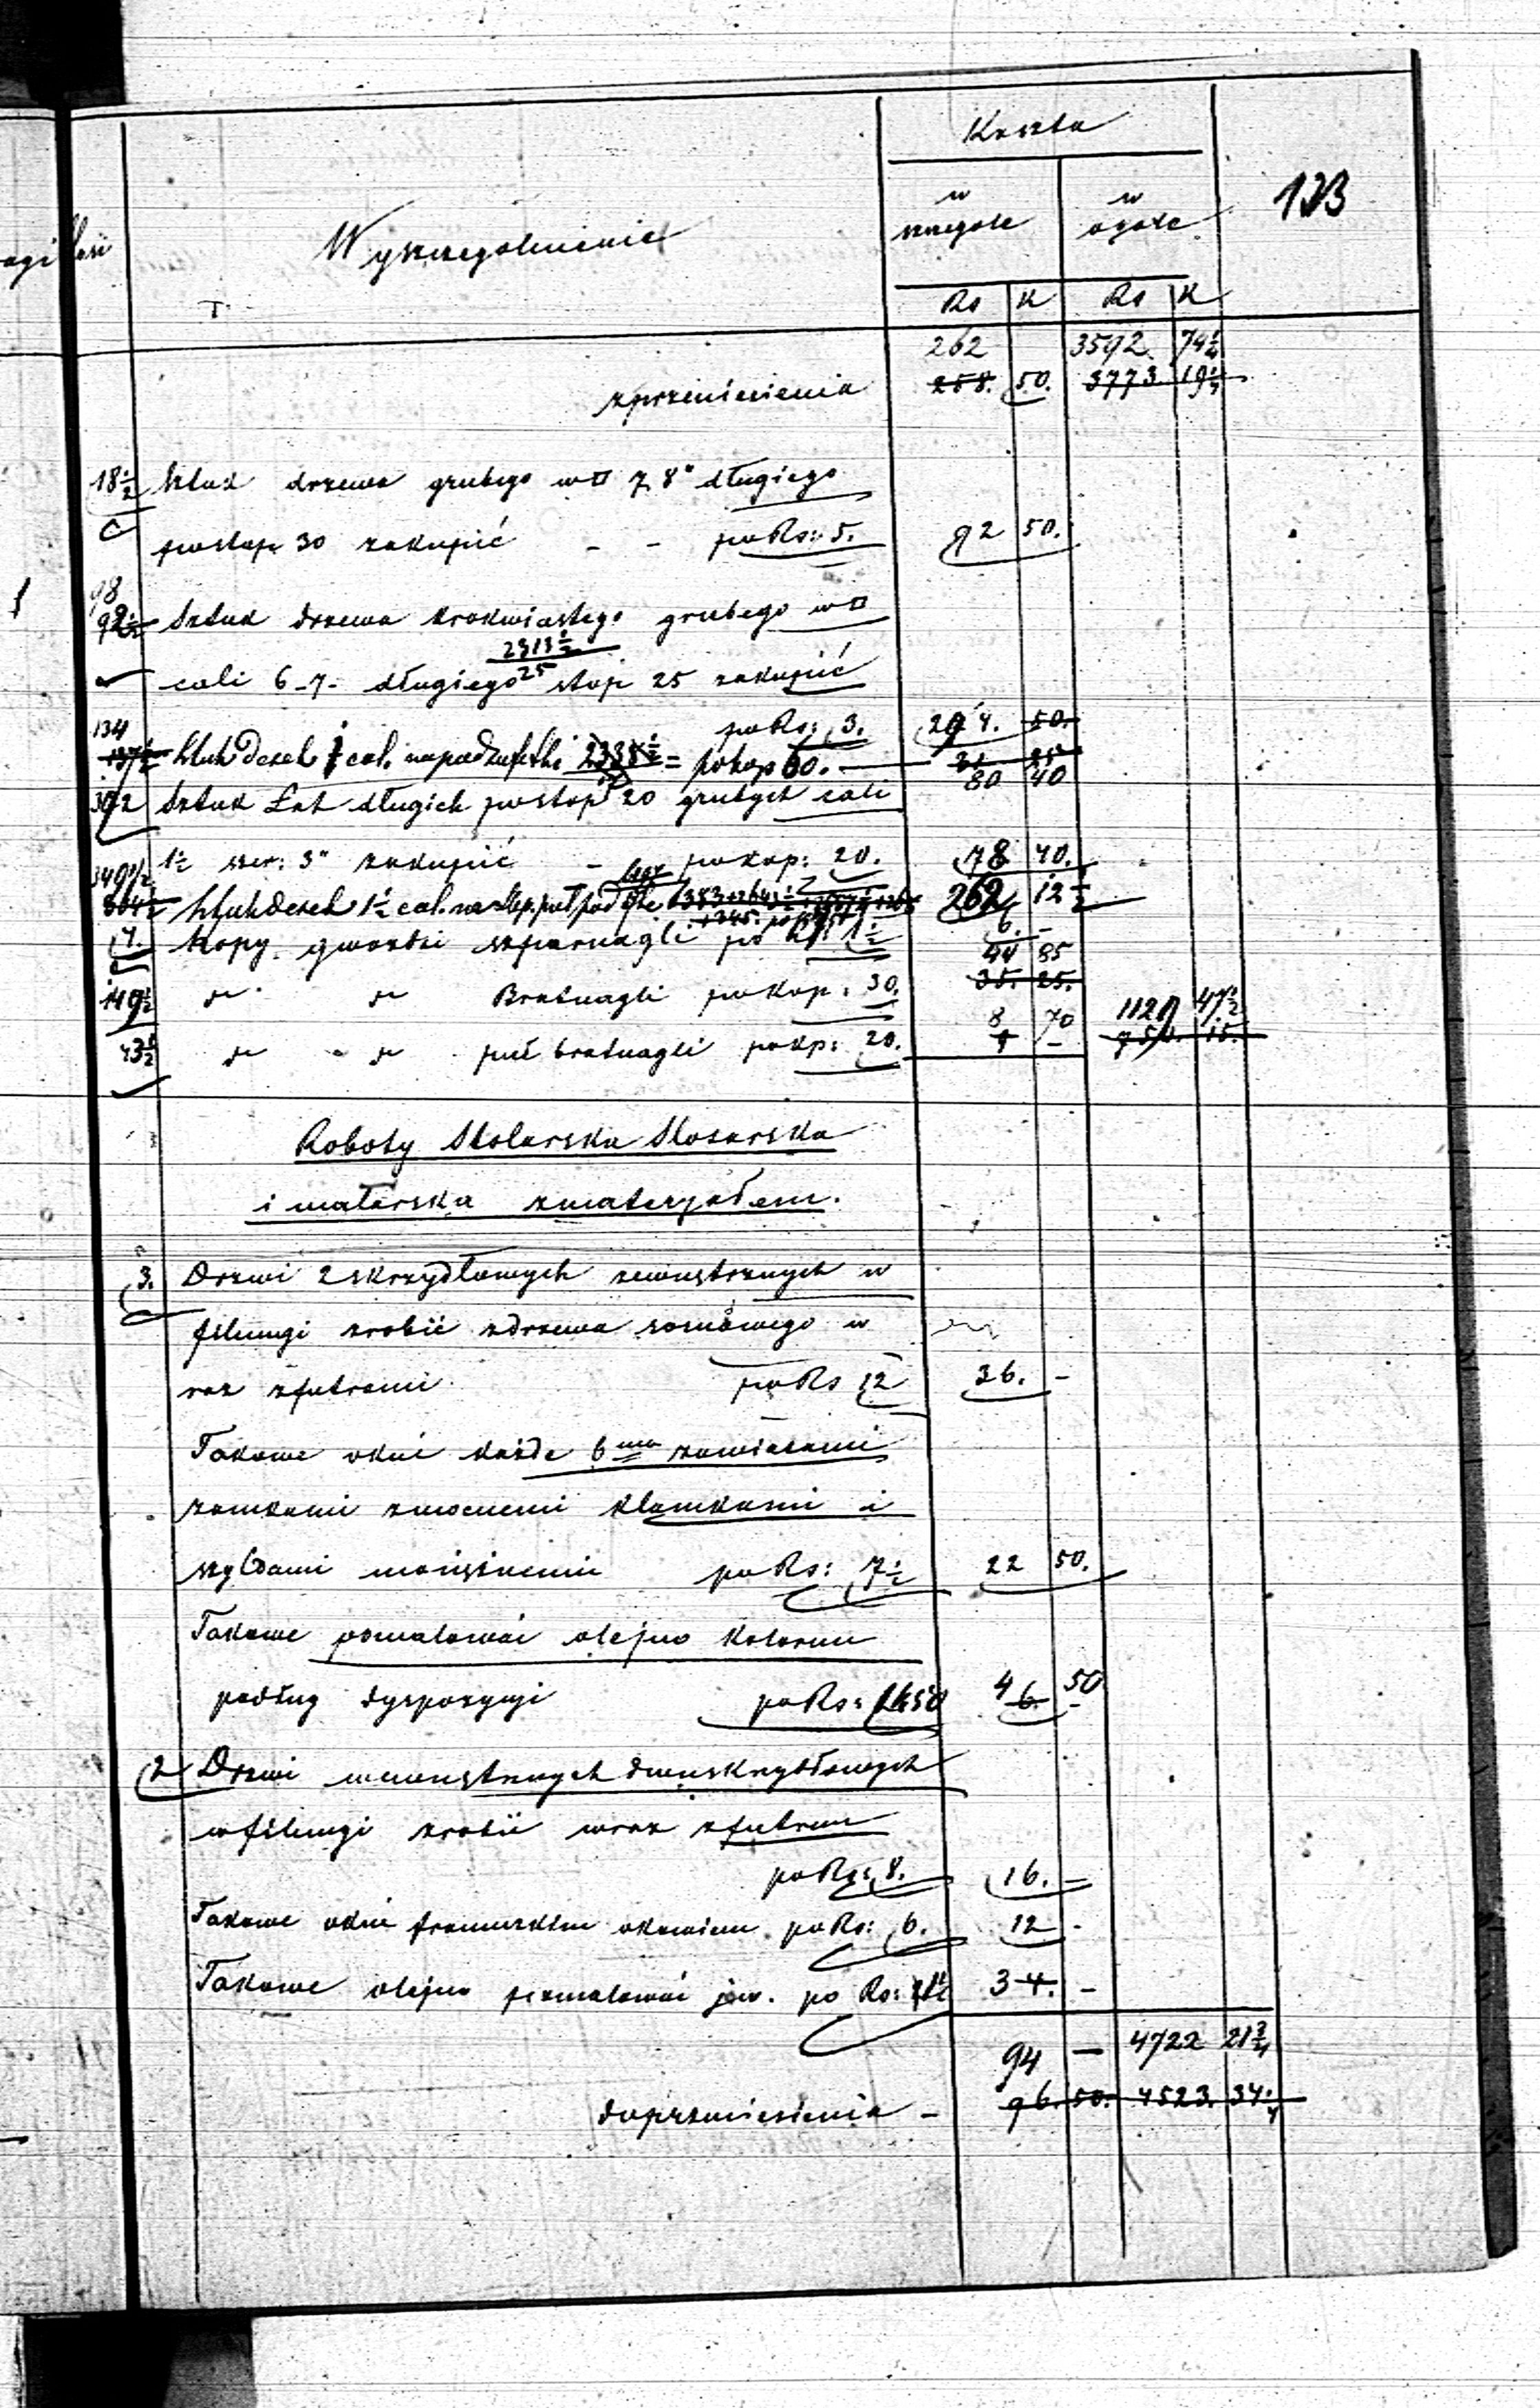 Koszta
w w
szczególe ogóle
133
Wyszczególnienie
Rs K Rs K
262 3592. 74 1/4
zprzeniesienia 258. 50. 3773. 19 1/4
18 1/2 Sztuk drzewa grubego w□ 7 8" długiego
postop 30 zakupić - - po Rs: 5. 92 50.
98
92 1/2 Sztuk drzewa krokwiastego grubego w□
2313 1/2
25
cali 6-7- długiego stop 25 zakupić
po Rs: 3. 294. 50.
134
137 1/2 Sztuk desek 1 cal. na podsufitki = po kop 60. 31 25
80 40
392 Sztuk Łat długich postop 20 grubych cali
1 1/2 szer: 3" zakupić - po kop: 20. 78 40.
349 1/2
304 1/2 Sztuk desek 1 1/2 cal. na ślep. puł. podłóg 262 12 1/2
4. Kopy gwoździ szparnagli po Rs 1 1/2 6. -
44 85
149 1/2 " " Bratnagli po Kop: 30. 35. 25.
1129 47 1/2
43 1/2 " " puł bratnagli po kp: 20. 8 70
750. 15.
Roboty Stolarska Slosarska
i malarska zmaterjałem.
3. Drzwi 2 skrzydłowych zewnstrznych w
filungi zrobić zdrzewa sosnowego w
raz zfutrami po Rs 12 36. -
Takowe okuć każde 6ma zawiasami
zamkami zmocnemi klamkami i
szyldami mosiężnemi po Rs: 7 1/2 22 50.
Takowe pomalować olejno kolorem
podług dyspozycyi po Rs: 1.50 4 50
6. -
2 Drzwi wewnstrznych dwuskrzydłowych
w filungi zrobić wraz zfutrem
po Rs: 8. 16. -
Takowe okuć francuzkim okuciem po Rs: 6. 12 -
Takowe olejno pomalować jw. po Rs: 1 1/2 3 4. -
94 - 4722 21 3/4
doprzeniesienia - 96. 50. 4523. 34 1/4